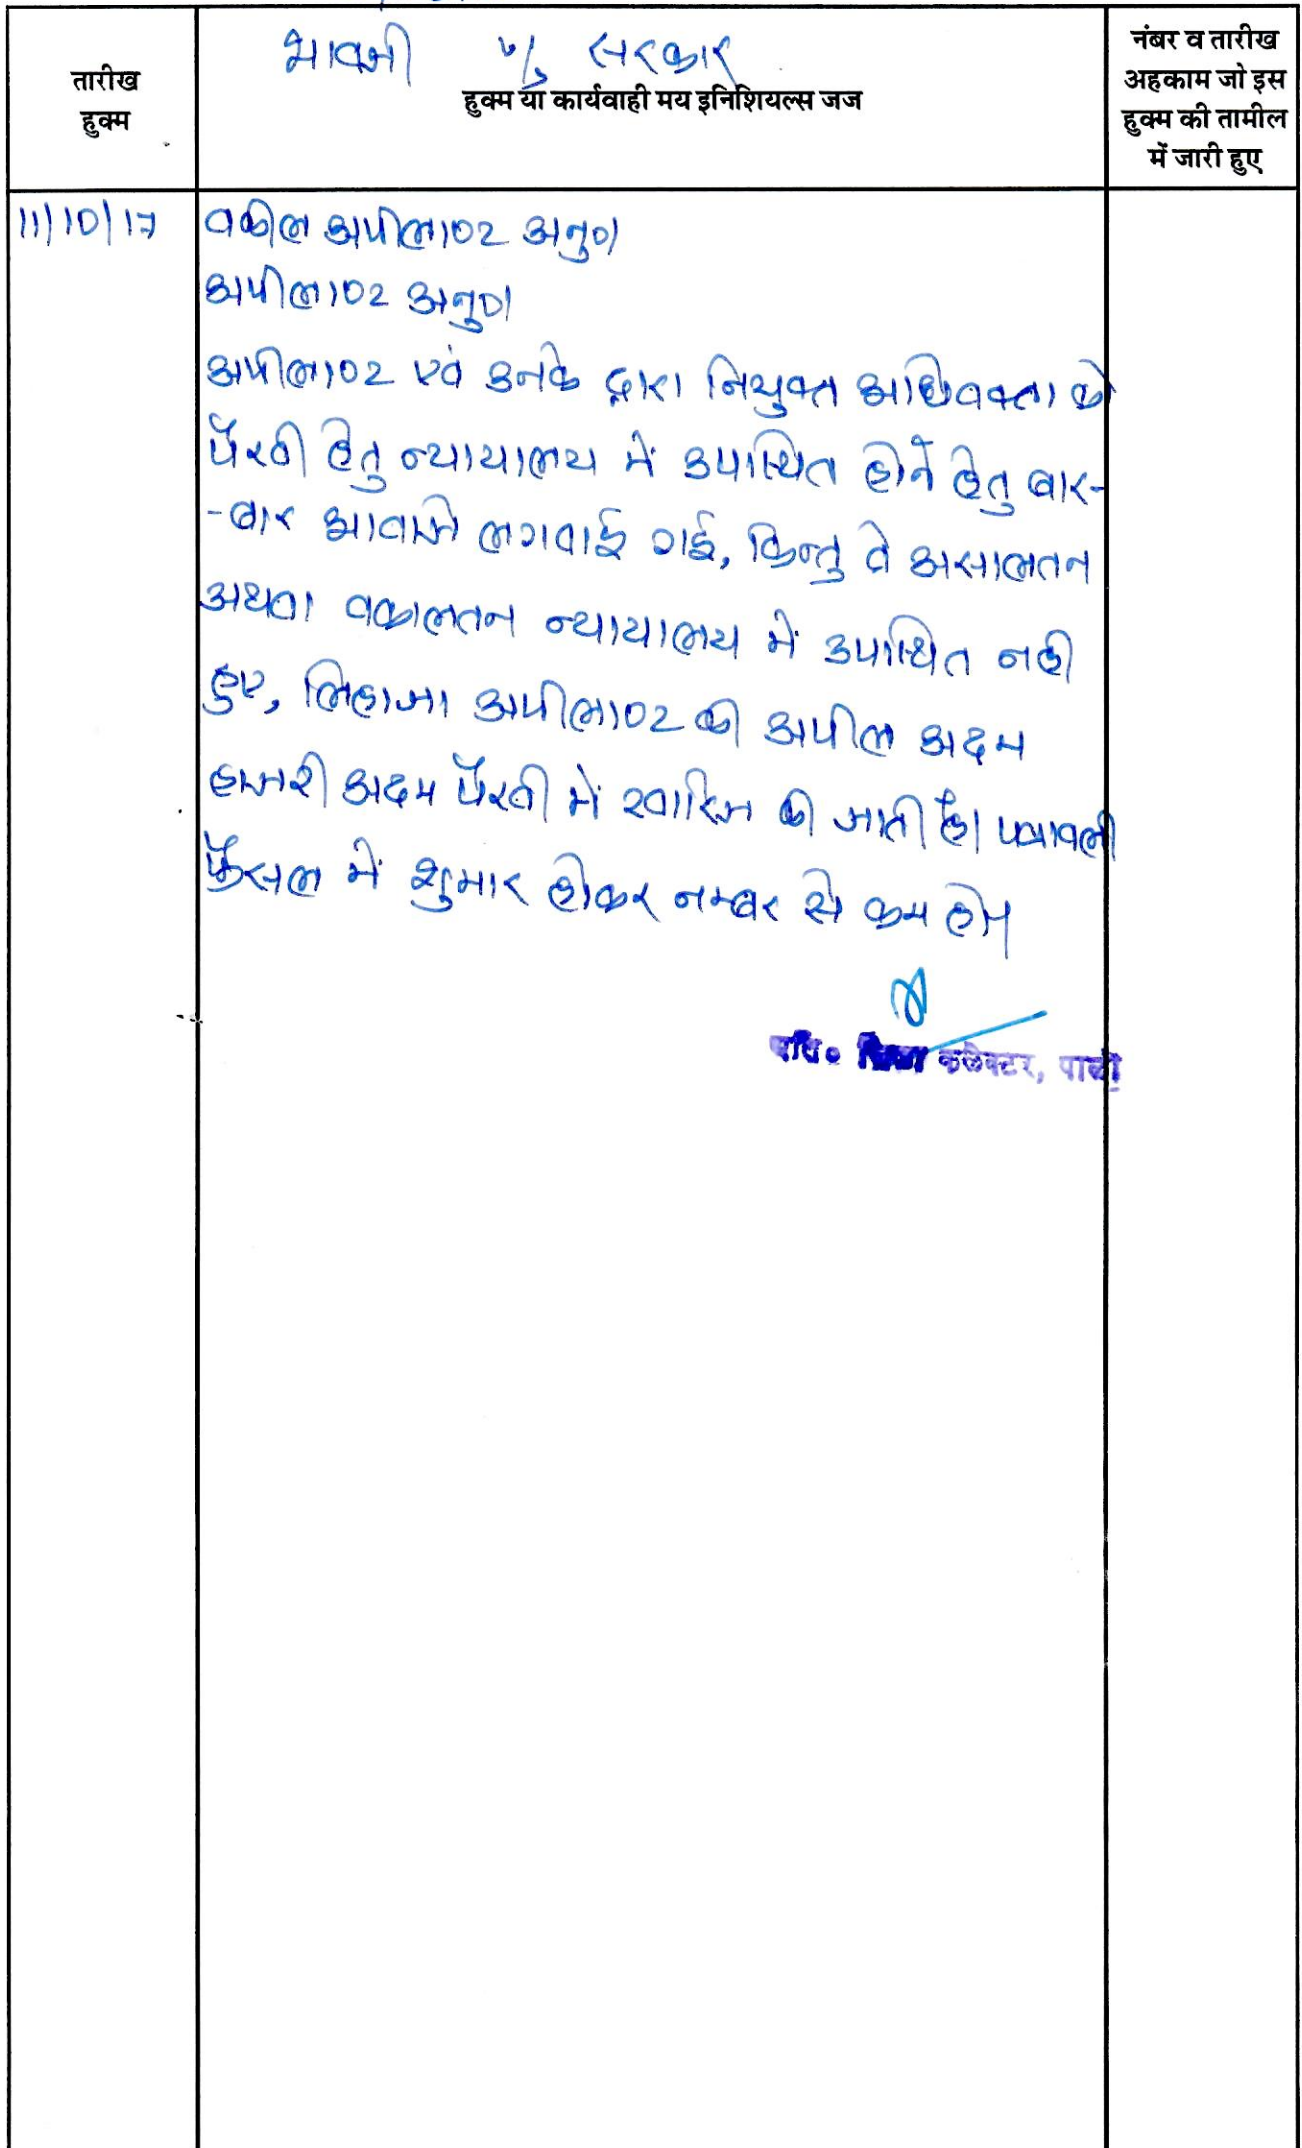 भावजी v/s सरकार
तारीख
हुक्म
हुक्म या कार्यवाही मय इनिशियल्स जज
नंबर व तारीख
अहकाम जो इस
हुक्म की तामील
में जारी हुए
11/10/17
वकील अपीलाण्ट अनु०।
अपीलाण्ट अनु०।
अपीलाण्ट एवं उनके द्वारा नियुक्त अधिवक्ता को
पैरवी हेतु न्यायालय में उपस्थित होने हेतु बार-
-बार आवाजे लगवाई गई, किन्तु वे असालतन
अथवा वकालतन न्यायालय में उपस्थित नही
हुए, लिहाजा अपीलाण्ट की अपील अदम
हाजरी अदम पैरवी में खारिज की जाती है। पत्रावली
फैसल में शुमार होकर नम्बर से कम हो।
अति० जिला कलेक्टर, पाली